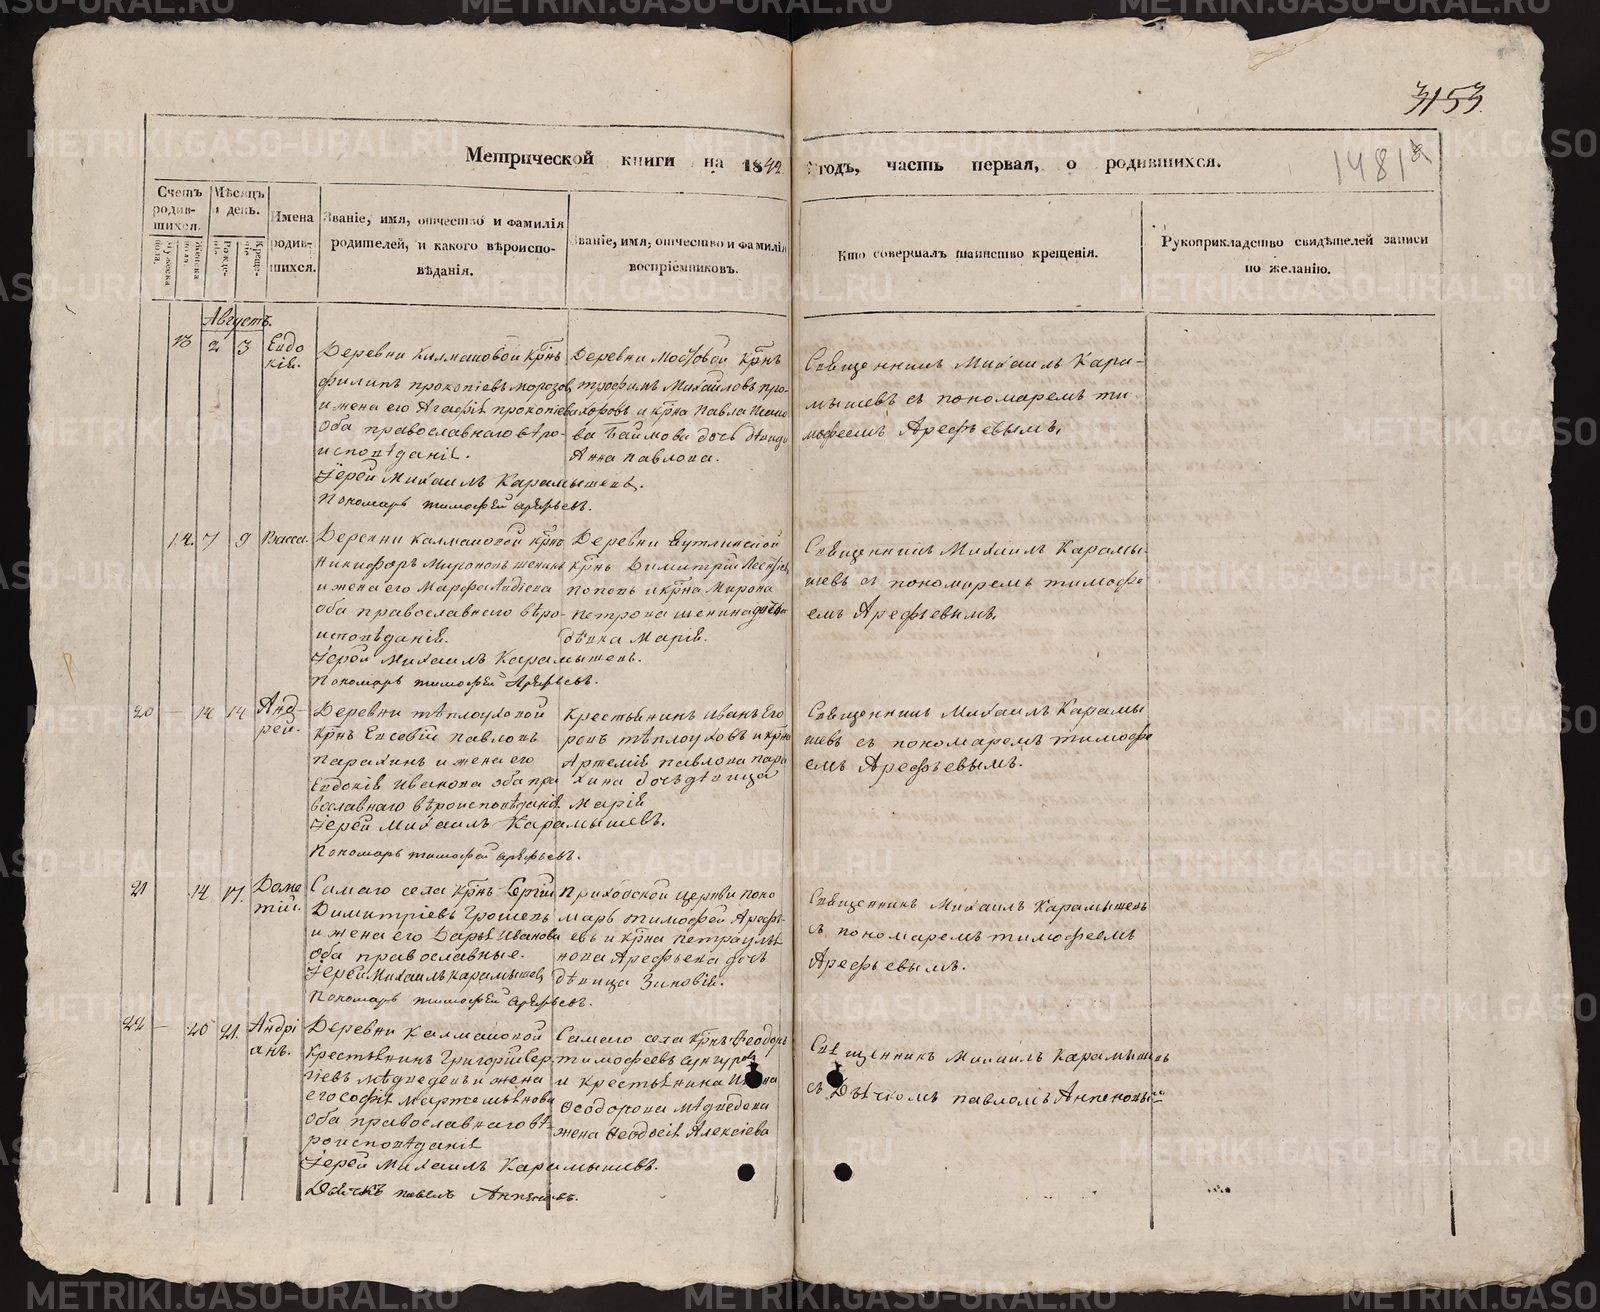 3153
1481
Метрической книги на 1842 годъ, часть первая, о родившихся.
Счетъ родившихся.
Мѣсяцъ и день.
Имена родившихся.
Званіе, имя, отчество и фамилія родителей, и какого вѣроисповѣданія.
Званіе, имя, отчество и фамилія воспріемниковъ.
Кто совершалъ таинство крещенія.
Рукоприкладство свидѣтелей записи по желанію.
Августъ.
13 2 3 Евдокія.
Деревни Калмаковой крѣнъ
Филипъ Прокопіевъ Морозов
и жена его Агафія Прокопіева
оба православнаго вѣро-
исповѣданія.
Іерей Михаилъ Карамышевъ.
Пономарь Тимофей Арефьевъ.
Деревни Мостовой крѣнъ
Трофимъ Михайловъ Про-
хоровъ и крѣна Павла
дочь дѣвица
Анна Павлова.
Священникъ Михаилъ Кара-
мышевъ съ пономаремъ Ти-
мофеемъ Арефьевымъ.
14. 7 9 Васса.
Деревни Калмаковой крѣнъ
Никифоръ Мироновъ Шенинъ
и жена его Марфа
оба православнаго вѣро-
исповѣданія.
Іерей Михаилъ Карамышевъ.
Пономарь Тимофей Арефьевъ.
Деревни
крѣнъ Димитрій
Поповъ и крѣна Мирона
Петрова Шенина дочь
дѣвка Марія.
Священникъ Михаилъ Карамы-
шевъ съ пономаремъ Тимофе-
емъ Арефьевымъ.
20 — 14 14 Андрей.
Деревни Тѣплоуховой
крѣнъ Евсевій Павловъ
Парахинъ и жена его
Евдокія Иванова оба пра
вославнаго вѣроисповѣданія
Іерей Михаилъ Карамышевъ.
Пономарь Тимофей Арефьевъ.
Крестьянинъ Иванъ Его
ровъ Тѣплоуховъ и крѣна
Артемія Павлова Пара
хина дочь дѣвица
Марія
Священникъ Михаилъ Карамы
шевъ съ пономаремъ Тимофе
емъ Арефьевымъ.
21 14 17. Дометій.
Самаго села крѣнъ Сергій
Димитріевъ Грошевъ
и жена его Дарья Иванова
оба православные.
Іерей Михаилъ Карамышевъ
Пономарь Тимофей Арефьевъ.
Приходской церкви поно
марь Тимофей Арефь-
евъ и крѣна Петра
нова Арефьева дочь
дѣвица Зиновія.
Священникъ Михаилъ Карамышевъ
съ пономаремъ Тимофеемъ
Арефьевымъ.
22 — 20 21. Андріанъ.
Деревни Калмаковой
крестьянинъ Григорій Сер
гіевъ Мѣдведевъ и жена
его Софія Мартемьянова
оба православнаго вѣ-
роисповѣданія
Іерей Михаилъ Карамышевъ.
Дьячекъ Павелъ
Самаго села крѣнъ Феодоръ
Тимофеевъ Сунгуровъ
и крестьянина Ивана
Феодорова Мѣдведева
жена Феодосія Алексіева
Священникъ Михаилъ Карамышевъ
съ Дьячкомъ Павломъ
METRIKI.GASO-URAL.RU